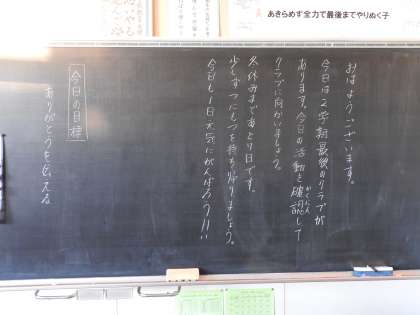 あきらめず全力で最後までやりぬく子
おはようございます。
今日は2学期最後のクラブが
あります。今日の活動を確認して
かくにん
クラブに向かいましょう。
冬休みまであと4日です。
少しずつにもつを持ち帰りましょう。
今日も1日元気にがんばろう!!
今日の目標
ありがとうを伝える